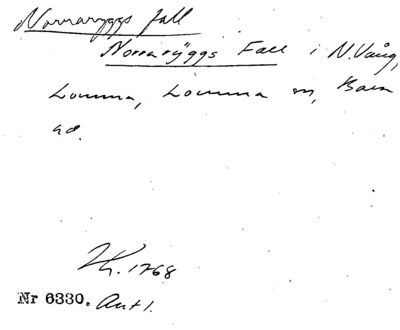 Norraryggs fall
Norrarÿggs Fall i N. Vång,
Lomma, Lomma sn, Bara
hd.
1768
Nr 6330. Ant 1.